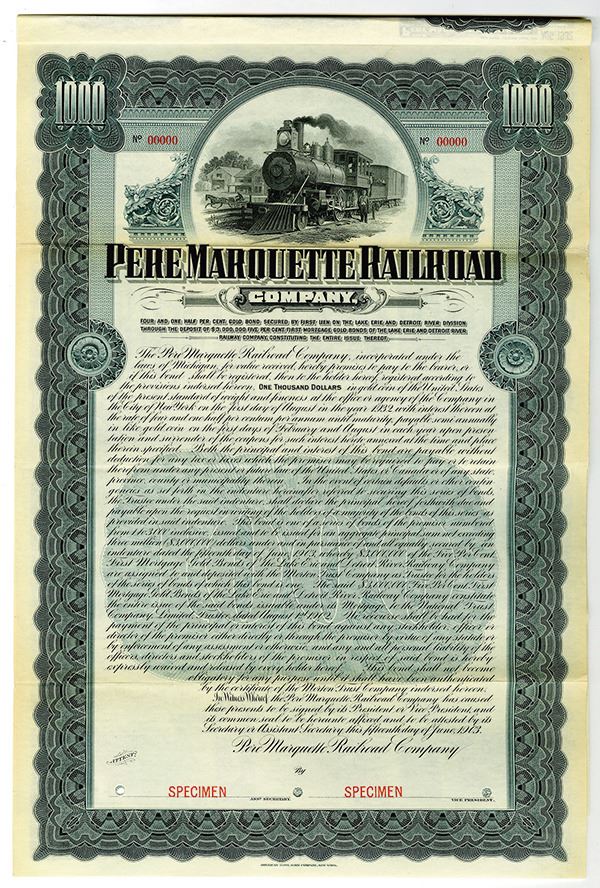 1000 1000
Nº 00000 Nº 00000
PERE MARQUETTE RAILROAD
COMPANY.
FOUR AND ONE HALF PER CENT. GOLD BOND, SECURED BY FIRST LIEN ON THE LAKE ERIE AND DETROIT RIVER DIVISION
THROUGH THE DEPOSIT OF $3,000,000 FIVE PER CENT. FIRST MORTGAGE GOLD BONDS OF THE LAKE ERIE AND DETROIT RIVER
RAILWAY COMPANY, CONSTITUTING THE ENTIRE ISSUE THEREOF.
The Pere Marquette Railroad Company, incorporated under the
laws of Michigan, for value received, hereby promises to pay to the bearer, or
if this bond shall be registered, then to the holder hereof, registered according to
the provisions indorsed hereon, ONE THOUSAND DOLLARS in gold coin of the United States
of the present standard of weight and fineness at the office or agency of the Company in
the City of New York on the first day of August in the year 1932, with interest thereon at
the rate of four and one half per centum per annum until maturity, payable semi annually
in like gold coin on the first days of February and August in each year upon presen
tation and surrender of the coupons for such interest hereto annexed at the time and place
therein specified. Both the principal and interest of this bond are payable without
deduction for any tax or taxes which the promisor may be required to pay or to retain
therefrom under any present or future law of the United States or Canada or of any state,
province, county or municipality therein. In the event of certain defaults or other contin
gencies as set forth in the indenture hereinafter referred to securing this series of bonds,
the Trustee under the said indenture shall declare the principal hereof forthwith due and
payable upon the request in writing of the holders of a majority of the bonds of this series as
provided in said indenture. This bond is one of a series of bonds of the promisor numbered
from 1 to 3,000 inclusive, issued and to be issued for an aggregate principal sum not exceeding
three million ($3,000,000) dollars, under and in pursuance of and all equally secured by an
indenture dated the fifteenth day of June, 1903, whereby $3,000,000 of the Five Per Cent.
First Mortgage Gold Bonds of the Lake Erie and Detroit River Railway Company
are assigned to and deposited with the Morton Trust Company as Trustee for the holders
of the series of bonds of which this bond is one. The said $3,000,000 Five Per Cent. First
Mortgage Gold Bonds of the Lake Erie and Detroit River Railway Company constitute
the entire issue of the said bonds issuable under its Mortgage to the National Trust
Company, Limited, Trustee, dated August 1st 1902. No recourse shall be had for the
payment of the principal or interest of this bond against any stockholder, officer or
director of the promisor either directly or through the promisor by virtue of any statute or
by enforcement of any assessment or otherwise, and any and all personal liability of the
officers, directors and stockholders of the promisor in respect of said bond is hereby
expressly waived and released by every holder hereof. This bond shall not become
obligatory for any purpose until it shall have been authenticated
by the certificate of the Morton Trust Company indorsed hereon.
In Witness Whereof, the Pere Marquette Railroad Company has caused
these presents to be signed by its President or Vice President, and
its common seal to be hereunto affixed and to be attested by its
Secretary or Assistant Secretary, this fifteenth day of June, 1903.
Pere Marquette Railroad Company
ATTEST:
By
SPECIMEN SPECIMEN
ASST. SECRETARY. VICE PRESIDENT.
AMERICAN BANK NOTE COMPANY, NEW YORK.